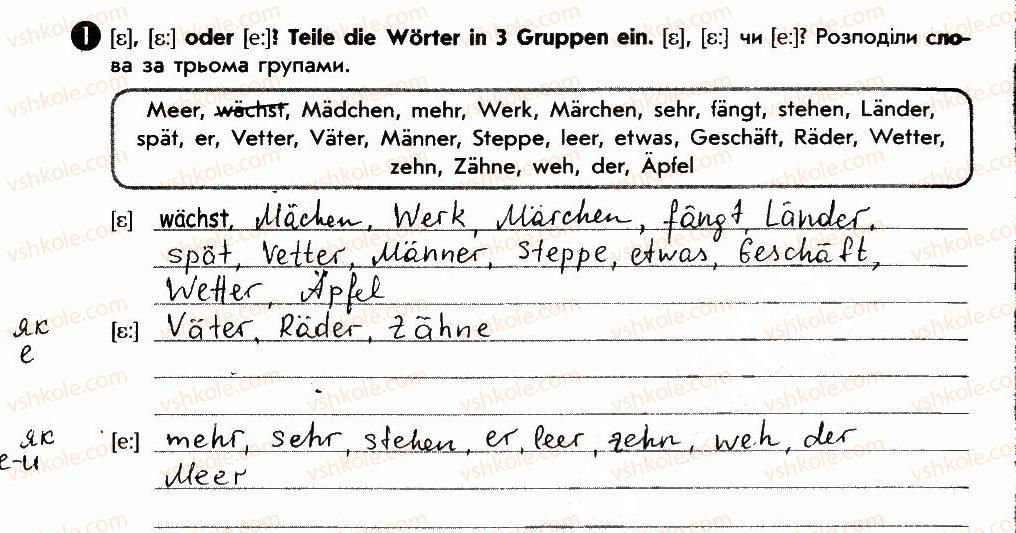 1 [ε], [ε:] oder [e:]? Teile die Wörter in 3 Gruppen ein. [ε], [ε:] чи [e:]? Розподіли сло-
ва за трьома групами.
Meer, wächst, Mädchen, mehr, Werk, Märchen, sehr, fängt, stehen, Länder,
spät, er, Vetter, Väter, Männer, Steppe, leer, etwas, Geschäft, Räder, Wetter,
zehn, Zähne, weh, der, Äpfel
[ε] wächst, Mächen, Werk, Märchen, fängt, Länder,
spät, Vetter, Männer, Steppe, etwas, Geschäft,
Wetter, Äpfel
як е [ε:] Väter, Räder, Zähne
як е-и [e:] mehr, sehr, stehen, er, leer, zehn, weh, der
Meer
vshkole.com